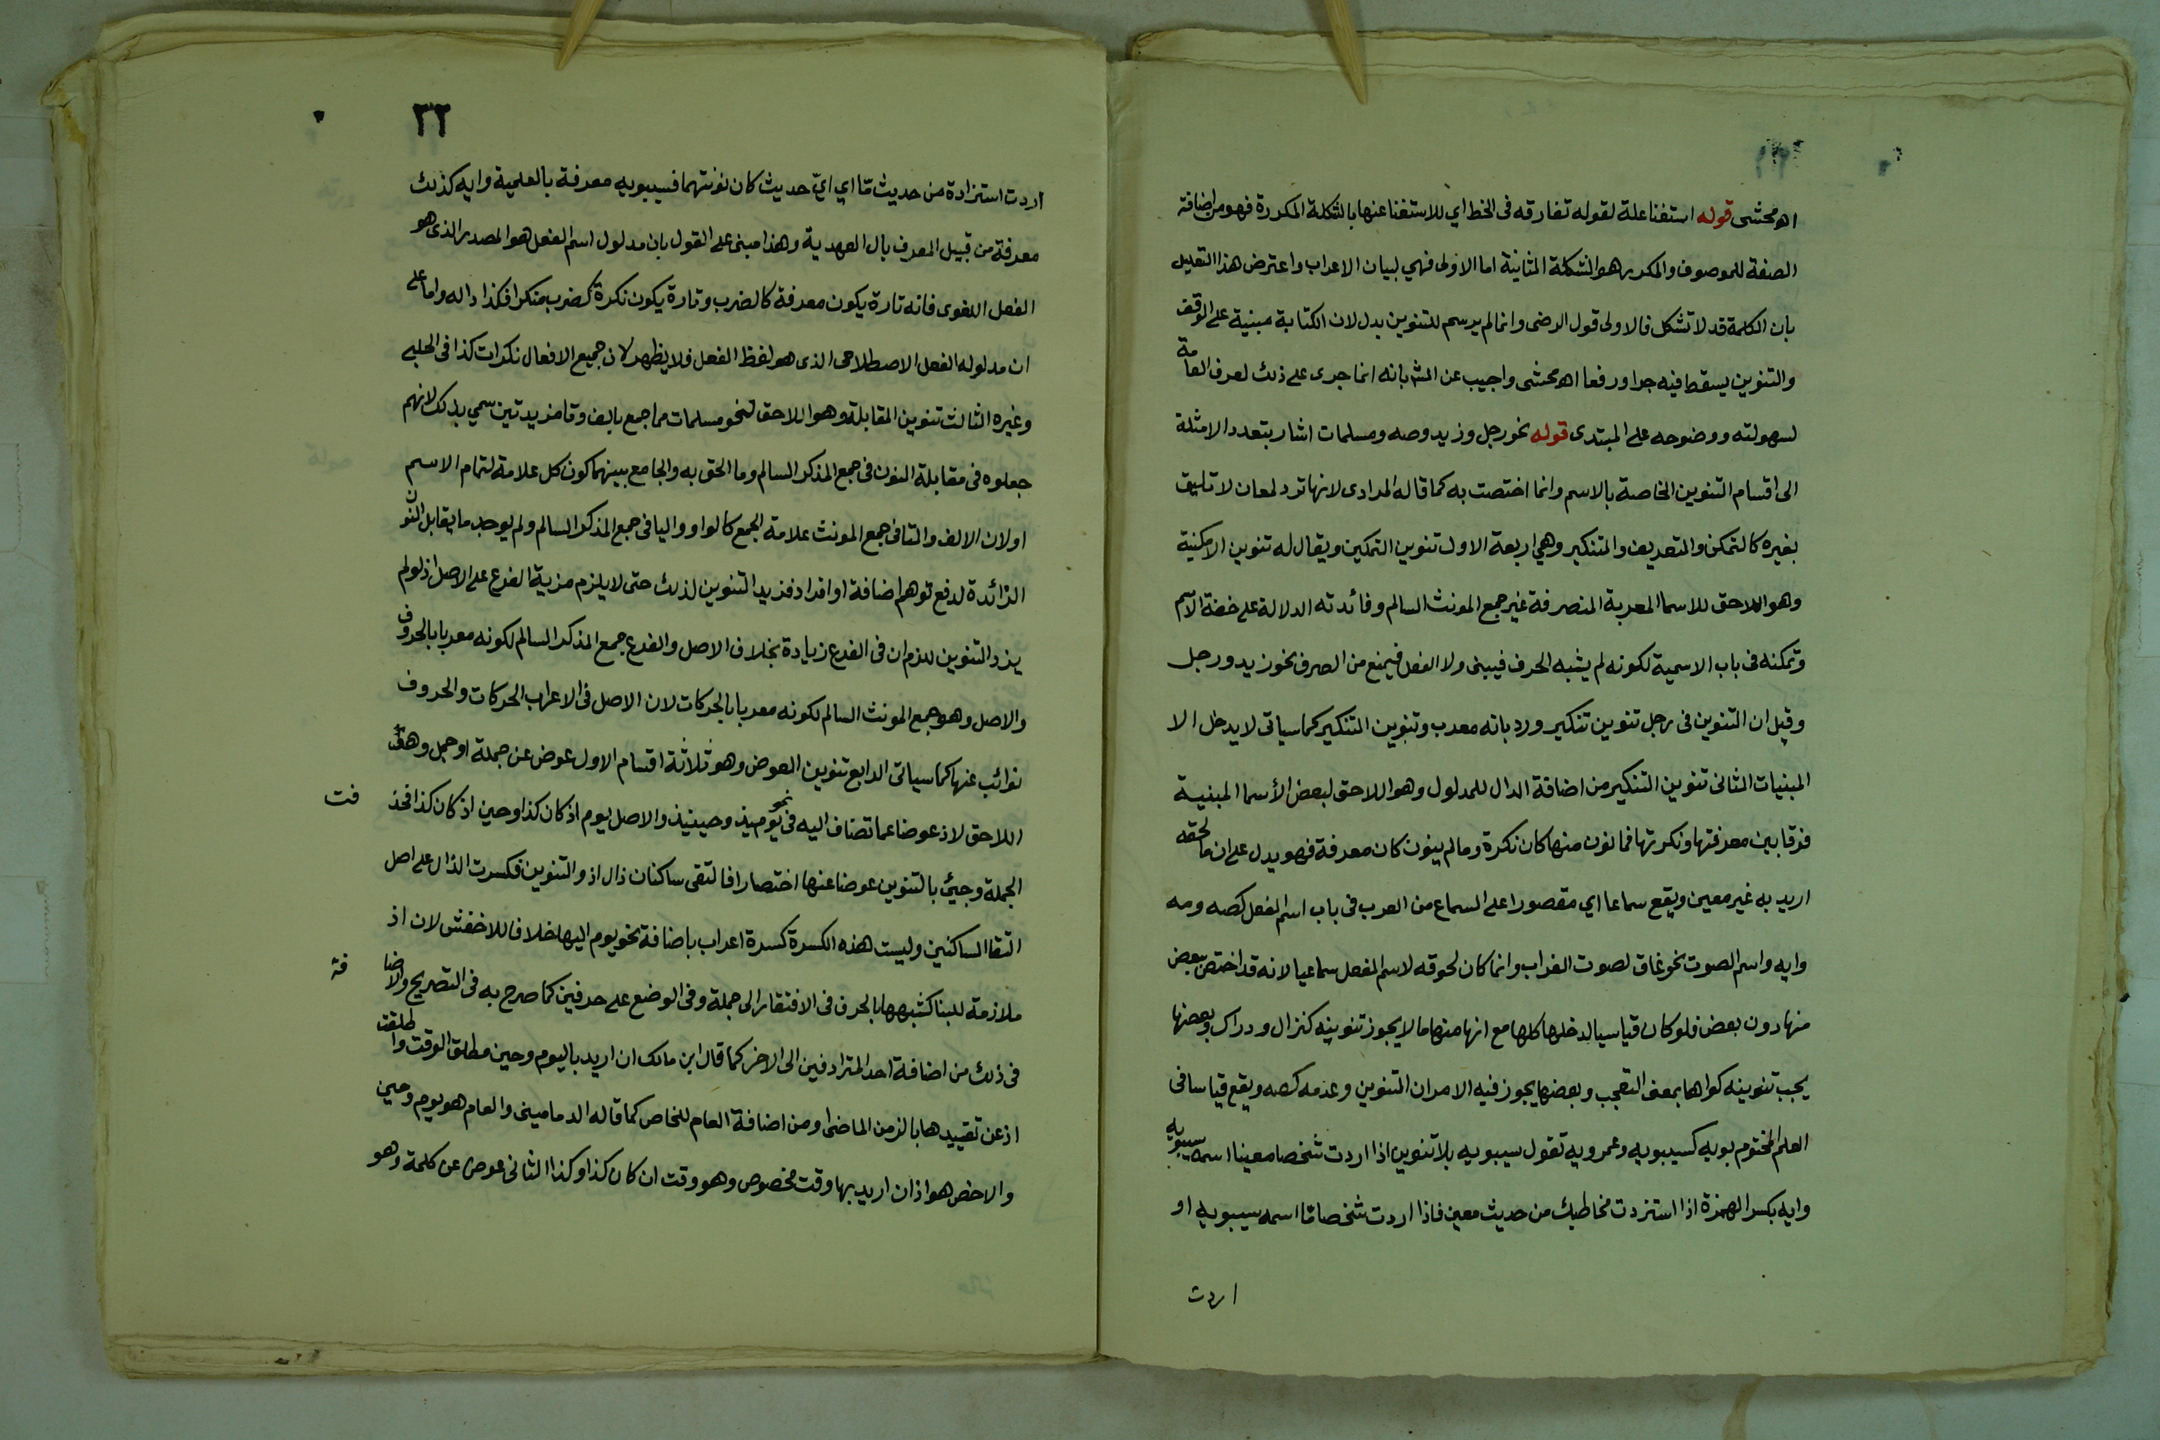 اه محشى قوله استغنا علة لقوله تفارقه فى الخط اي للاستغنا عنها بالشكلة المكررة فهو من اضافة
الصفة للموصوف والمكرر هو الشكلة الثانية اما الاولى فهي لبيان الاعراب واعترض هذا التعليل
بان الكلمة قد لا تشكل فالاولى قول الرضى وانما لم يرسم للتنوين بدل لان الكتابة مبنية على الوقف
والتنوين يسقط فيه جرا ورفعا اه محشى واجيب عن الش بانه انما جرى على ذلك لعرف العامة
لسهولته ووضوحه على المبتدى قوله نحو رجل وزيد وصه ومسلمات اشار بتعدد الامثلة
الى اقسام التنوين الخاصة بالاسم وانما اختصت به كما قاله المرادى لانها ترد لمعان لا تليق
بغيره كالتمكن والتعريف والتنكير وهي اربعة الاول تنوين التمكين ويقال له تنوين الامكنية
وهو اللاحق للاسما المعربة المنصرفة غير جمع المونث السالم وفائدته الدلالة على خفة الاسم
وتمكنه فى باب الاسمية لكونه لم يشبه الحرف فيبنى ولا الفعل فيمنع من الصرف نحو زيد ورجل
وقيل ان التنوين فى رجل تنوين تنكير ورد بانه معرب وتنوين التنكير كما سياتى لا يدخل الا
المبنيات الثانى تنوين التنكير من اضافة الدال للمدلول وهو اللاحق لبعض الأسما المبنية
فرقا بين معرفتها ونكرتها فما نون منها كان نكرة وما لم ينون كان معرفة فهو يدل على ان ما لحقه
اريد به غير معين ويقع سماعا اي مقصورا على السماع من العرب فى باب اسم الفعل كصه ومه
وايه واسم الصوت نحو غاق لصوت الغراب وانما كان لحوقه لاسم الفعل سماعيا لانه قد اختص ببعض
منها دون بعض فلو كان قياسيا لدخلها كلها مع انها منها ما لا يجوز تنوينه كنزال ودراك وبعضها
يجب تنوينه كواها بمعنى التعجب وبعضها يجوز فيه الامران التنوين وعدمه كصه ويقع قياسا فى
العلم المختوم بويه كسيبويه وعمرويه تقول سيبويه بلا تنوين اذا اردت شخصا معينا اسمه سيبويه
وايه بكسر الهمزة اذا استزدت مخاطبك من حديث معين فاذا اردت شخصا ما اسمه سيبويه او
اردت
٣٢
اردت استزادة من حديث ما اي ايّ حديث كان نونتهما فسيبويه معرفة بالعلمية وايه كذلك
معرفة من قبيل المعرف بال العهدية وهذا مبنى على القول بان مدلول اسم الفعل هو المصدر الذى هو
الفعل اللغوى فانه تارة يكون معرفة كالضرب وتارة يكون نكرة كضرب منكرا فكذا داله واما على
ان مدلوله الفعل الاصطلاحى الذى هو لفظ الفعل فلا يظهر لان جميع الافعال نكرات كذا فى الحلبي
وغيره الثالث تنوين المقابلة وهو اللاحق لنحو مسلمات مما جمع بالف وتا مزيدتين سمي بذلك لانهم
جعلوه فى مقابلة النون فى جمع المذكر السالم وما الحق به والجامع بينهما كون كل علامة لتمام الاسم
او لان الالف والتا فى جمع المونث علامة الجمع كالواو واليا فى جمع المذكر السالم ولم يوجد ما يقابل النون
الزائدة لدفع توهم اضافة او افراد فزيد التنوين لذلك حتى لا يلزم مزية الفرع على الاصل اذ لو لم
يزد التنوين للزم ان فى الفرع زيادة بخلاف الاصل والفرع جمع المذكر السالم لكونه معربا بالحروف
والاصل وهو جمع المونث السالم لكونه معربا بالحركات لان الاصل فى الاعراب الحركات والحروف
نوائب عنها كما سياتى الرابع تنوين العوض وهو ثلاثة اقسام الاول عوض عن جملة او جمل وهو
اللاحق لاذ عوضا عما تضاف اليه فى نحو يومئذ وحينئذ والاصل يوم اذ كان كذا وحين اذ كان كذا فحذ
فت
الجملة وجيئ بالتنوين عوضا عنها اختصارا فالتقى ساكنان ذال اذ والتنوين فكسرت الذال على اصل
التقا الساكنين وليست هذه الكسرة كسرة اعراب باضافة نحو يوم اليها خلافا للاخفش لان اذ
ملازمة للبنا كشبهها بالحرف فى الافتقار الى جملة وفى الوضع على حرفين كما صرح به فى التصريح والاضا
فة
فى ذلك من اضافة احد المترادفين الى الاخر كما قال ابن مالك ان اريد باليوم وحين مطلق الوقت واطلقت
اذ عن تقييدها بالزمن الماضى او من اضافة العام للخاص كما قاله الدمامينى والعام هو يوم وحين
والاخص هو اذ ان اريد بها وقت مخصوص وهو وقت ان كان كذا وكذا الثانى عوض عن كلمة وهو